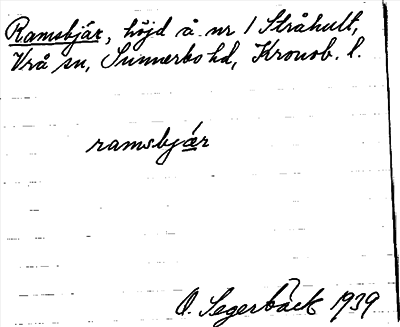 Ramsbjär, höjd å nr 1 Stråhult,
Vrå sn, Sunnerbo hd, Kronob. l.
ramsbjár
O. Segerbäck 1939